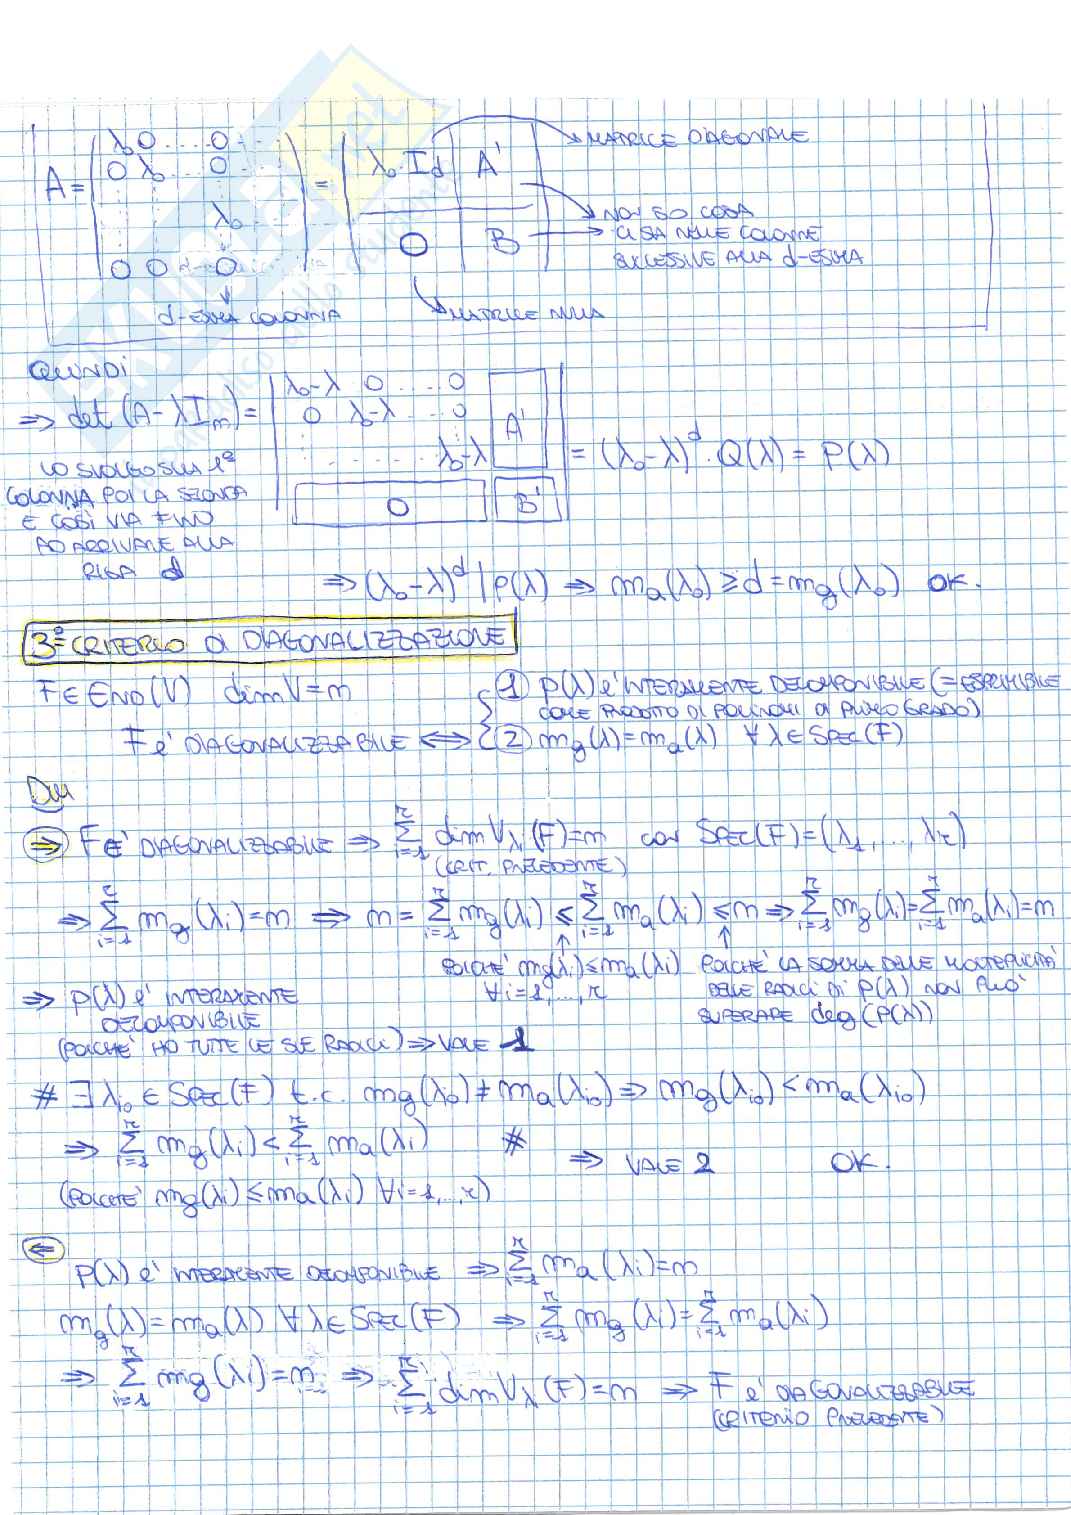 A = ( λ₀ 0 ..... 0 ... ; 0 λ₀ ... 0 ; λ₀ ; 0 0 ... 0 ) = ( λ₀·I_d | A' ; 0 | B )
MATRICE DIAGONALE
NON SO COSA
CI SIA NELLE COLONNE
SUCCESSIVE ALLA d-ESIMA
d-ESIMA COLONNA
MATRICE NULLA
QUINDI
⇒ det(A-λI_n) = | λ₀-λ 0 ... 0 ; 0 λ₀-λ ... 0 ; ..... λ₀-λ ; A' ; 0 B' | = (λ₀-λ)^d · Q(λ) = P(λ)
LO SVOLGO SULLA 1ª
COLONNA POI LA SECONDA
E COSÌ VIA FINO
AD ARRIVARE ALLA
RIGA d
⇒ (λ₀-λ)^d | P(λ) ⇒ m_a(λ₀) ≥ d = m_g(λ₀) OK.
3° CRITERIO DI DIAGONALIZZAZIONE
F ∈ END(V) dim V = n
① P(λ) E' INTERAMENTE DECOMPONIBILE (= ESPRIMIBILE
COME PRODOTTO DI POLINOMI DI PRIMO GRADO)
F E' DIAGONALIZZABILE ⟺ { ② m_g(λ) = m_a(λ) ∀ λ ∈ SPEC(F)
DIM
⇒ F E' DIAGONALIZZABILE ⇒ Σ_{i=1}^r dim V_{λi}(F) = n CON SPEC(F) = (λ₁, ..., λr)
(CRIT. PRECEDENTE)
⇒ Σ_{i=1}^r m_g(λi) = n ⇒ n = Σ_{i=1}^r m_g(λi) ≤ Σ_{i=1}^r m_a(λi) ≤ n ⇒ Σ_{i=1}^r m_g(λi) = Σ_{i=1}^r m_a(λi) = n
POICHÈ m_g(λi) ≤ m_a(λi) ∀ i=1,...,r
POICHÈ LA SOMMA DELLE MOLTEPLICITÀ
DELLE RADICI DI P(λ) NON PUÒ
SUPERARE deg(P(λ))
⇒ P(λ) E' INTERAMENTE
DECOMPONIBILE
(POICHÈ HO TUTTE LE SUE RADICI) ⇒ VALE 1
# ∃ λ_{i₀} ∈ SPEC(F) t.c. m_g(λ_{i₀}) ≠ m_a(λ_{i₀}) ⇒ m_g(λ_{i₀}) < m_a(λ_{i₀})
⇒ Σ_{i=1}^r m_g(λi) < Σ_{i=1}^r m_a(λi) #
⇒ VALE 2 OK.
(POICHÈ m_g(λi) ≤ m_a(λi) ∀ i=1,...,r)
⇐
P(λ) E' INTERAMENTE DECOMPONIBILE ⇒ Σ_{i=1}^r m_a(λi) = n
m_g(λ) = m_a(λ) ∀ λ ∈ SPEC(F) ⇒ Σ_{i=1}^r m_g(λi) = Σ_{i=1}^r m_a(λi)
⇒ Σ_{i=1}^r m_g(λi) = n ⇒ Σ_{i=1}^r dim V_λ(F) = n ⇒ F E' DIAGONALIZZABILE
(CRITERIO PRECEDENTE)